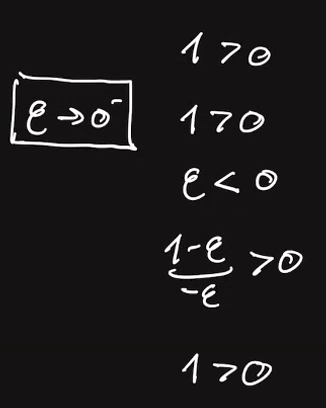 1 > 0
ε → 0⁻
1 > 0
ε < 0
1-ε
-ε > 0
1 > 0